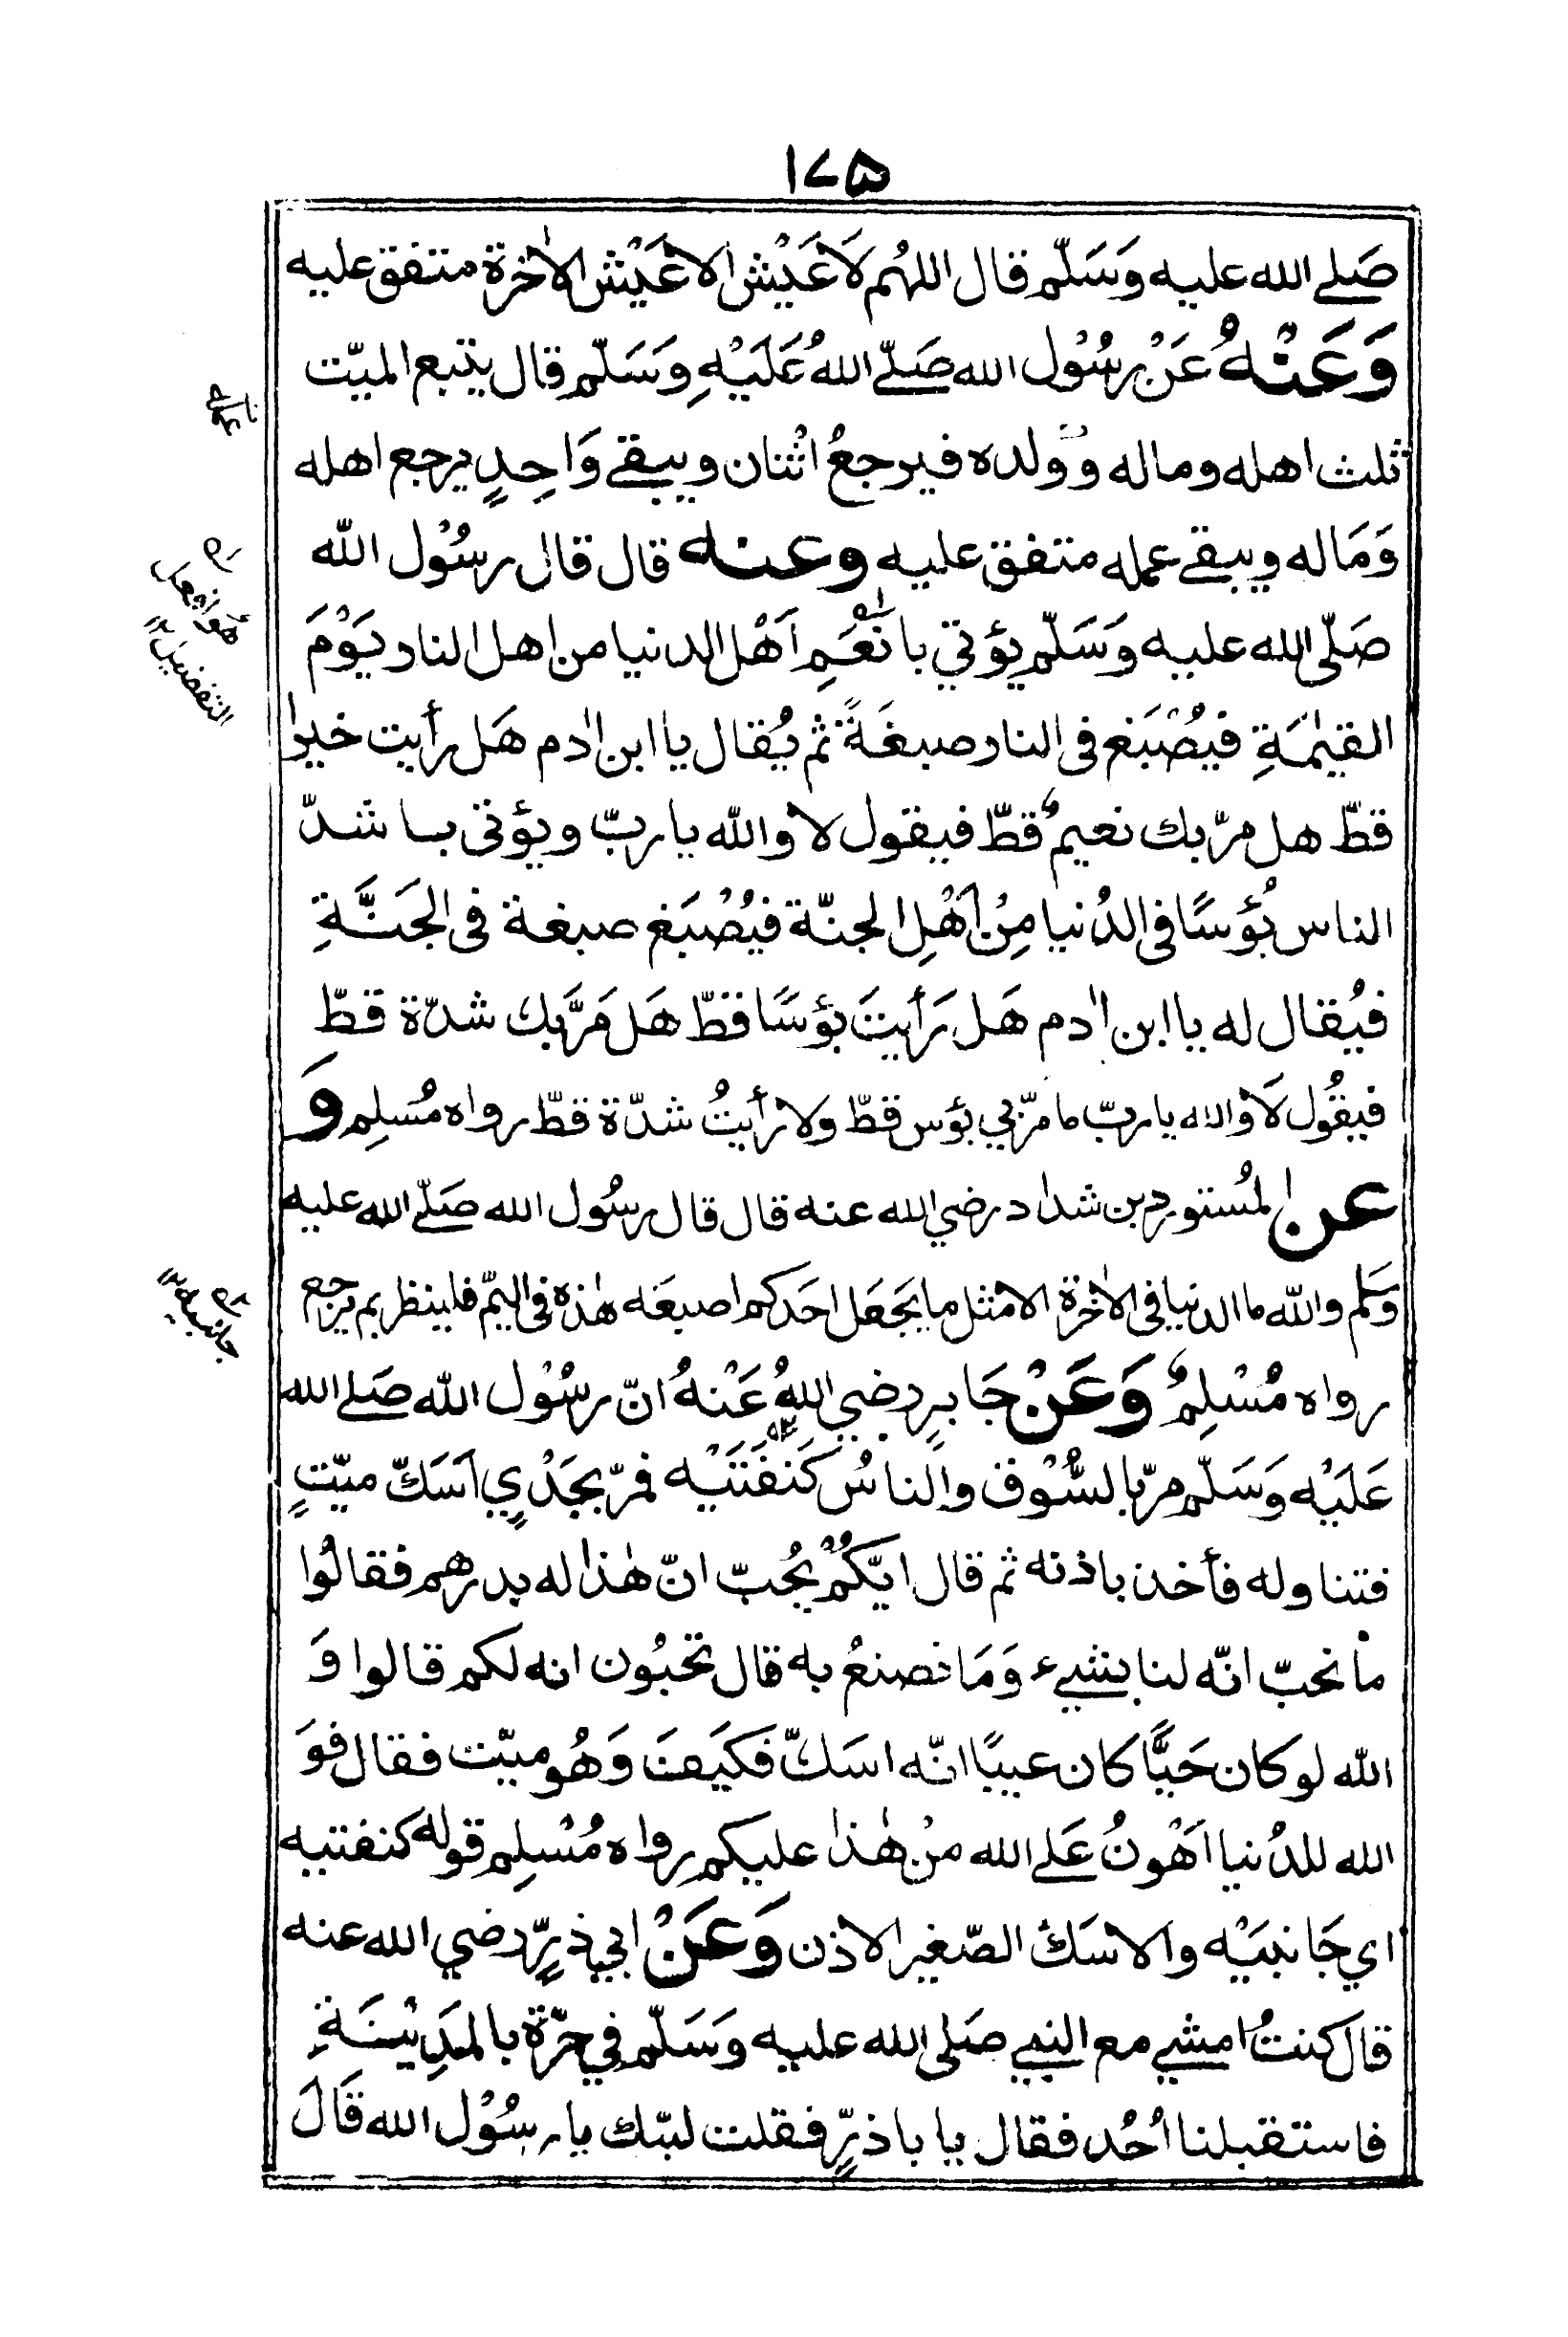 ١٧٥
صَلے الله عليه وَسَلّم قال اللهُم لَا عَيْشَ الا عَيْشَ الاٰخرة متفق عليه
وَعَنْهُ عَنْ رسُوْل الله صَلّے اللهُ عَلَيْهِ وَسَلّم قال يتبع الميّت
ثلث اهله وماله وولده فيرجعُ اثْنان ويبقے وَاحِدٍ يرجع اهله
وَمَاله ويبقے عمله متفق عليه وعنه قال قال رسُوْل اللّه
صَلّى الله عليه وَسَلّم يؤتي بانْعَمِ اَهْل الدنيا من اهل النار يَوْمَ
القيٰمَةِ فيُصْبَغ فى النار صبغَةً ثم يُقال يا ابن اٰدم هَل رأيت خيرا
قطّ هل مرّ بك نعيمٌ قطّ فيقول لا واللّه يا ربّ ويؤتى باشدّ
الناس بُؤسًا فى الدُنيا مِنْ اَهْلِ الجنّة فيُصْبَغ صبغة فى الجَنَّةِ
فيُقال له يا ابن اٰدم هَل رَأيتَ بؤسًا قطّ هَل مَرَّ بك شدّة قطّ
فيقُول لَا والله يا ربّ ما مرّ بي بؤس قطّ ولا رأيتُ شدّة قطّ رواه مُسلِم وَ
عن المُستورِد بن شداد رضي الله عنه قال قال رسُول الله صَلّے الله عليه
وَسَلم واللّه ما الدنيا فى الاٰخرة الا مثل ما يَجعَل احَدكم اصبعَه هٰذه فى اليمّ فلينظر بم يرجع
رواه مُسْلِمٌ وَعَنْ جَابِرٍ رضي اللهُ عَنْهُ انّ رسُوْل اللّه صَلے الله
عَلَيْه وَسَلّم مرّ بالسُّوْق والناسُ كَنفَتَيْه فمرّ بجَدْيٍ اَسَكّ ميّتٍ
فتناوله فأخذ باذنه ثم قال ايّكُمْ يُحبّ انّ هٰذا له بدرهم فقالُوا
ما نحبّ انّه لنا بشيء وَمَا نصنعُ به قال تحبُون انه لكم قالوا وَ
اللّه لو كان حَيًّا كان عيبًا انّه اسَكّ فكَيَفَ وَهُو ميّت فقال فوَ
الله للدُنيا اَهْونُ عَلے الله منْ هٰذا عليكم رواه مُسْلِم قوله كنفتيه
اي جَانبَيْه والاسَكّ الصّغير الاذن وَعَنْ ابي ذرٍّ رضي الله عنه
قال كنتُ امشے مع النبے صَلى الله عليه وَسَلّم في حرّة بالمَدِيْنَةِ
فاستقبلنا اُحُد فقال يا باذرٍّ فقلت لبّيك يا رسُوْل الله قَالَ
هُوَ افعل
التفضيل ١٢
جانبيه ١٢